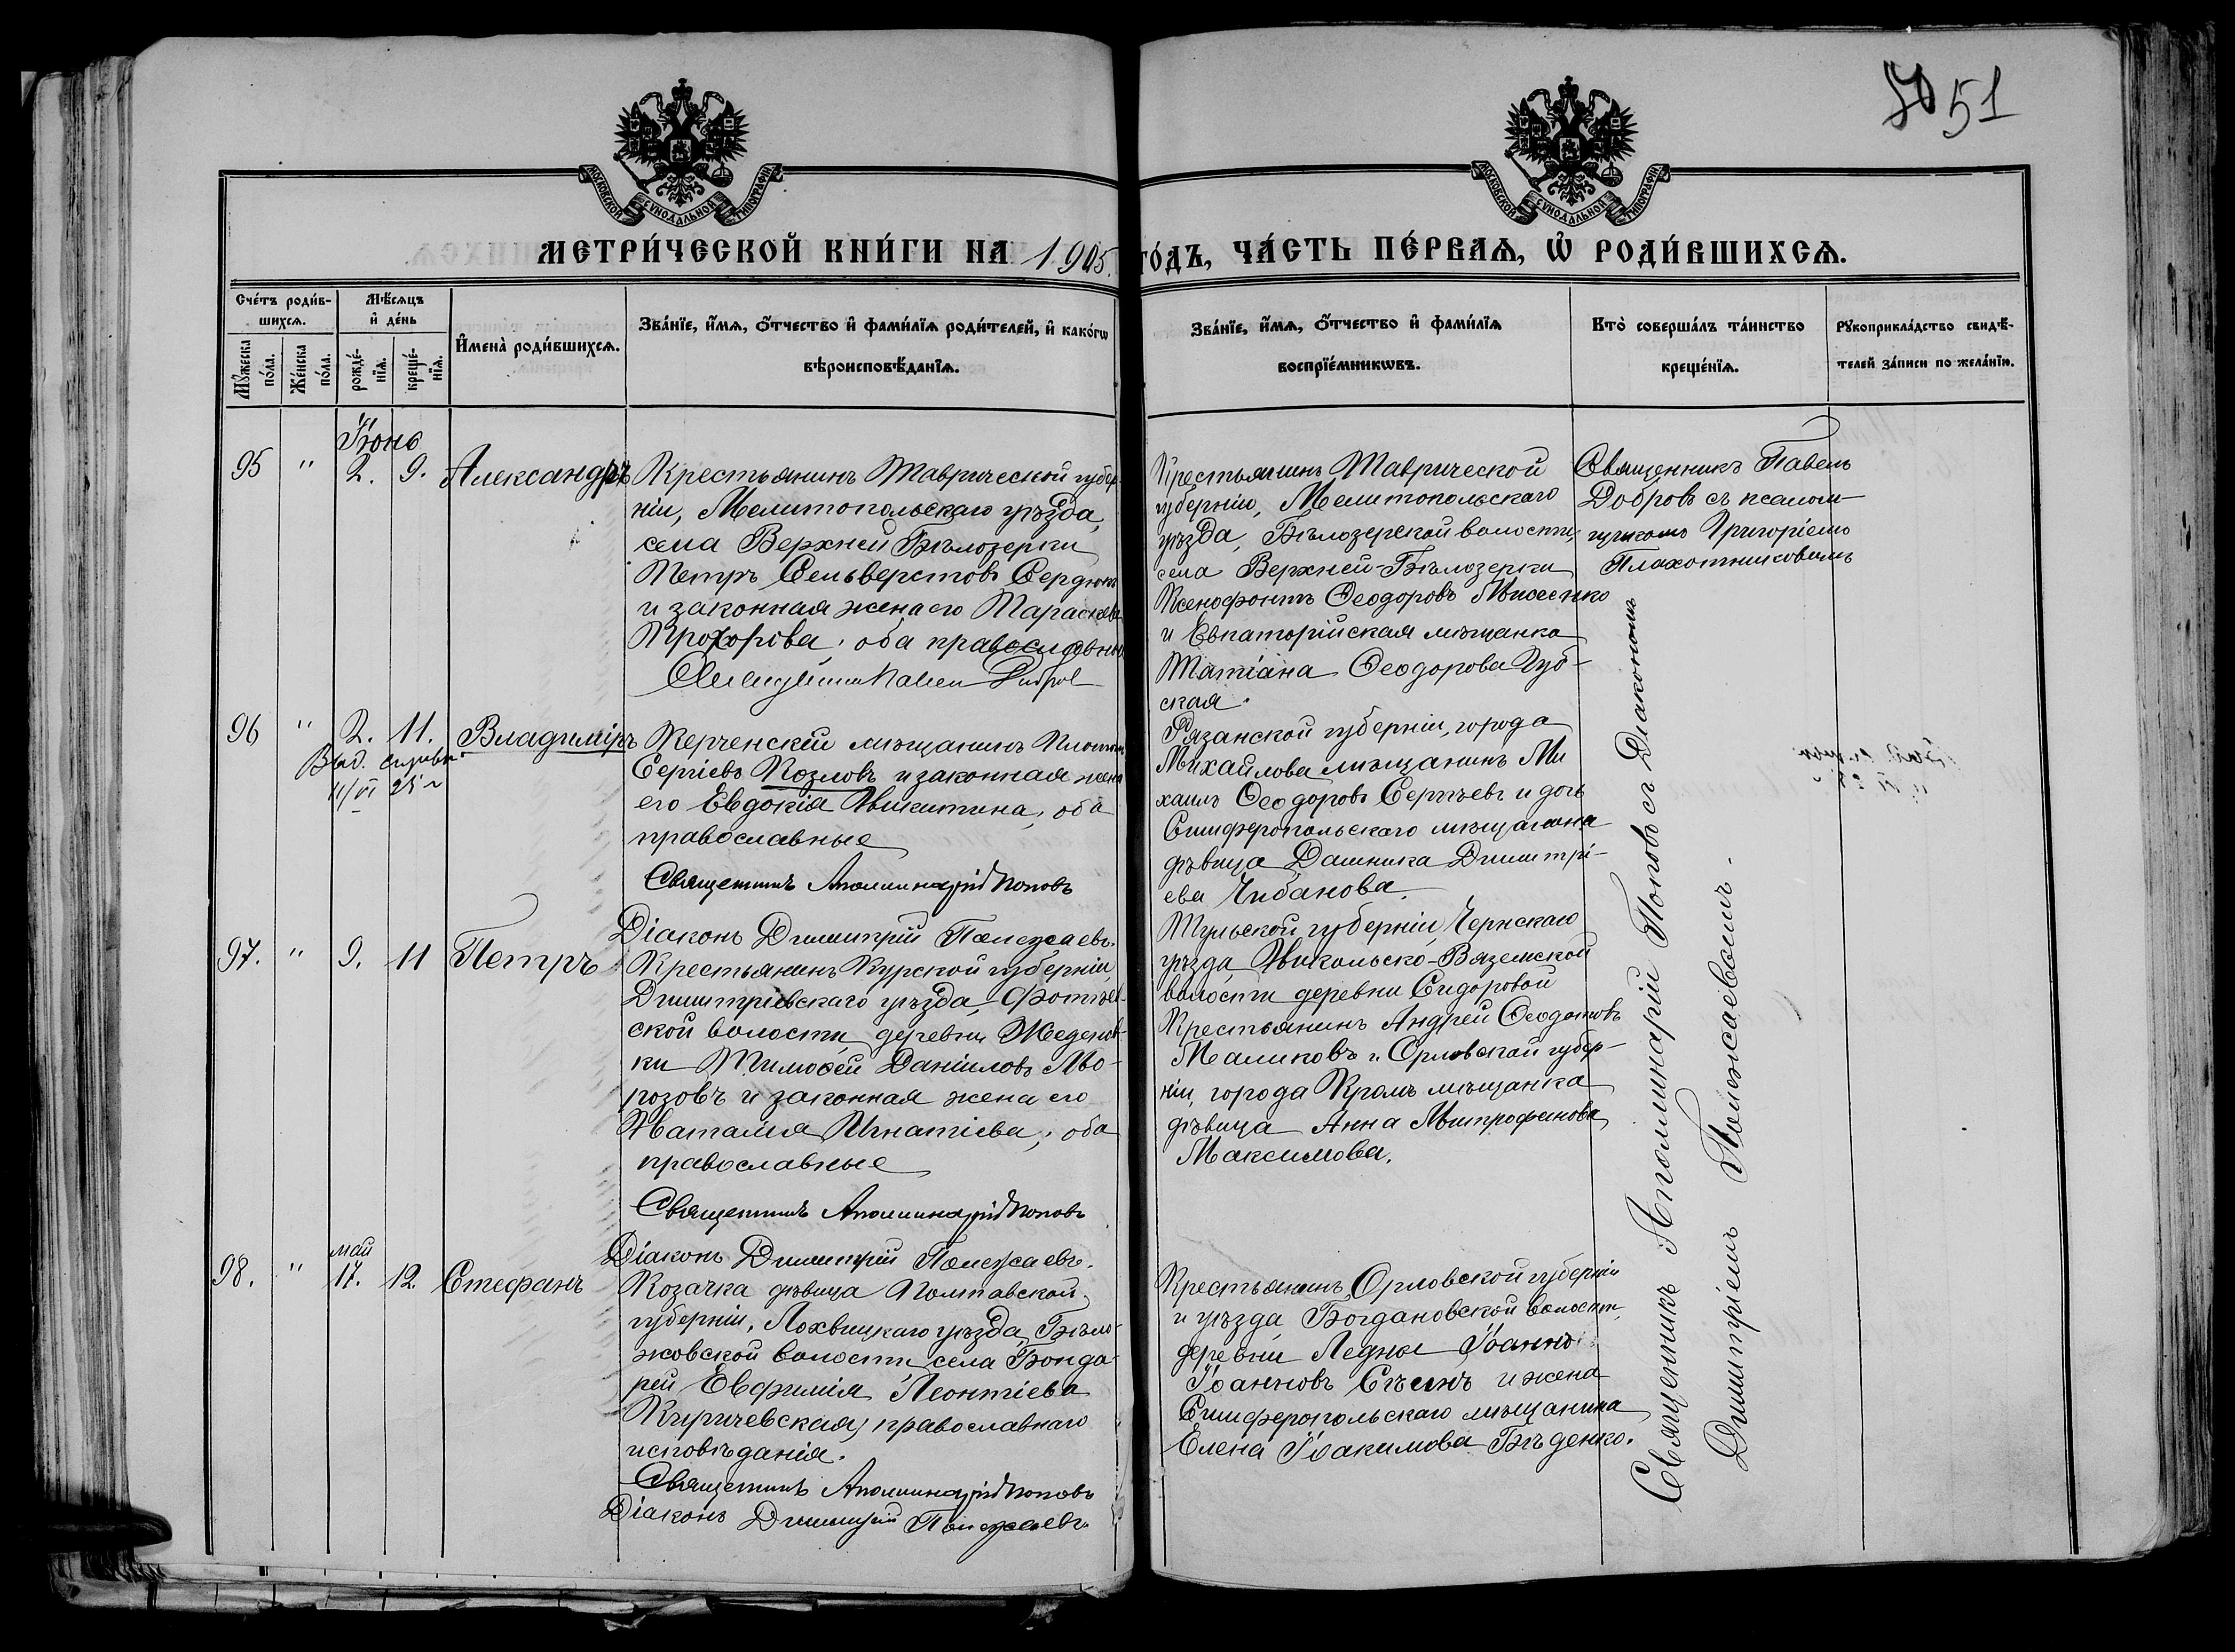 50 51
МОСКОВСКОЙ СѴНОДАЛЬНОЙ ТИПОГРАФІИ
МОСКОВСКОЙ СѴНОДАЛЬНОЙ ТИПОГРАФІИ
МЕТРИ́ЧЕСКОЙ КНИ́ГИ НА 1905.
ГО́ДЪ, ЧА́СТЬ ПЕ́РВАѦ, Ѡ҆ РОДИ́ВШИХСѦ.
Сче́тъ роди́в-
шихсѧ.
Мꙋ́жеска по́ла.
Же́нска по́ла.
Мѣ́сѧцъ
и҆ де́нь
рожде́-
нїѧ.
креще́-
нїѧ.
И҆мена̀ роди́вшихсѧ.
Зва́нїе, и҆́мѧ, ѻ҆́тчество и҆ фами́лїѧ роди́телей, и҆ како́гѡ
вѣроисповѣ́данїѧ.
Зва́нїе, и҆́мѧ, ѻ҆́тчество и҆ фами́лїѧ
воспрїе́мникѡвъ.
Кто̀ соверша́лъ та́инство
креще́нїѧ.
Рꙋкоприкла́дство свидѣ́-
телей за́писи по жела́нїю.
Іюнь
95 " 2. 9. Александръ
Крестьянинъ Таврической губер-
ніи, Мелитопольскаго уѣзда,
села Верхней Бѣлозерки
Петръ Сельверстовъ Сердюкъ
и законная жена его Параскева
Прохорова, оба православные
Священникъ Павелъ Добровъ
Крестьянинъ Таврической
губерніи, Мелитопольскаго
уѣзда, Бѣлозерской волости,
села Верхней-Бѣлозерки
Ксенофонтъ Ѳеодоровъ
и Евпаторійская мѣщанка
Татіана Ѳеодорова Губ-
ская.
Священникъ Павелъ
Добровъ съ псалом-
щикомъ Григоріемъ
Плахотниковымъ
96 " 2. 11. Владиміръ
Выд. справк.
11/VI 25 г
Керченскій мѣщанинъ
Сергіевъ Козловъ и законная жена
его Евдокія Никитина, оба
православные
Священникъ Аполлинарій Поповъ
Діаконъ Димитрій Полежаевъ.
Рязанской губерніи, города
Михайлова мѣщанинъ Ми
хаилъ Ѳеодоровъ Сергѣевъ и дочь
Симферопольскаго мѣщанина
дѣвица Димитрі-
ева Чибанова.
97. " 9. 11 Петръ
Крестьянинъ Курской губерніи,
Димитріевскаго уѣзда,
ской волости, деревни
ки Тимоѳей Даніиловъ Мо-
розовъ и законная жена его
Наталія Игнатіева, оба
православные
Священникъ Аполлинарій Поповъ
Діаконъ Димитрій Полежаевъ.
Тульской губерніи, Чернскаго
уѣзда Никольско-Вяземской
волости деревни Сидоровой
Крестьянинъ Андрей
Маликовъ и Орловской губер-
ніи, города Кромъ мѣщанка
дѣвица Анна Митрофанова
Максимова.
май
98. " 17. 12. Стефанъ
Козачка дѣвица Полтавской
губерніи, Лохвицкаго уѣзда,
жовской волости села Бонда-
рей Евфимія Леонтіева
Киричевская, православнаго
исповѣданія.
Священникъ Аполлинарій Поповъ
Діаконъ Димитрій Полежаевъ.
Крестьянинъ Орловской губерніи
и уѣзда Богдановской волости,
деревни Ледны Іоаннъ
Іоанновъ и жена
Симферопольскаго мѣщанина
Елена Іоакимова Бѣденко.
Священникъ Аполлинарій Поповъ съ Діакономъ
Димитріемъ Полежаевымъ.